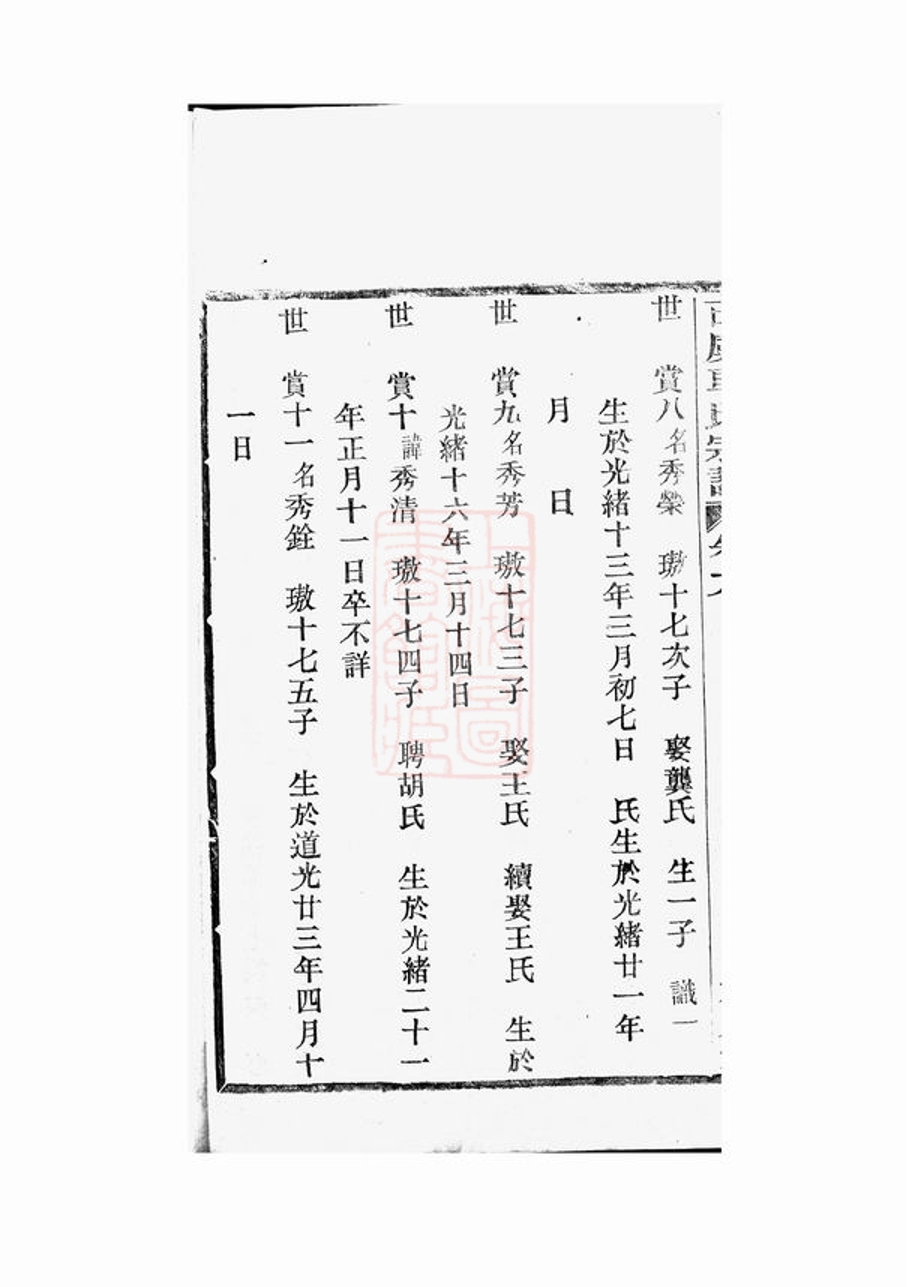 世　賞八名秀榮　璈十七次子　娶龔氏　生一子　識一
生於光緒十三年三月初七日　氏生於光緒廿一年
月　日
世　賞九名秀芳　璈十七三子　娶王氏　續娶王氏　生於
光緒十六年三月十四日
世　賞十諱秀清　璈十七四子　聘胡氏　生於光緒二十一
年正月十一日卒不詳
世　賞十一名秀銓　璈十七五子　生於道光廿三年四月十
一日